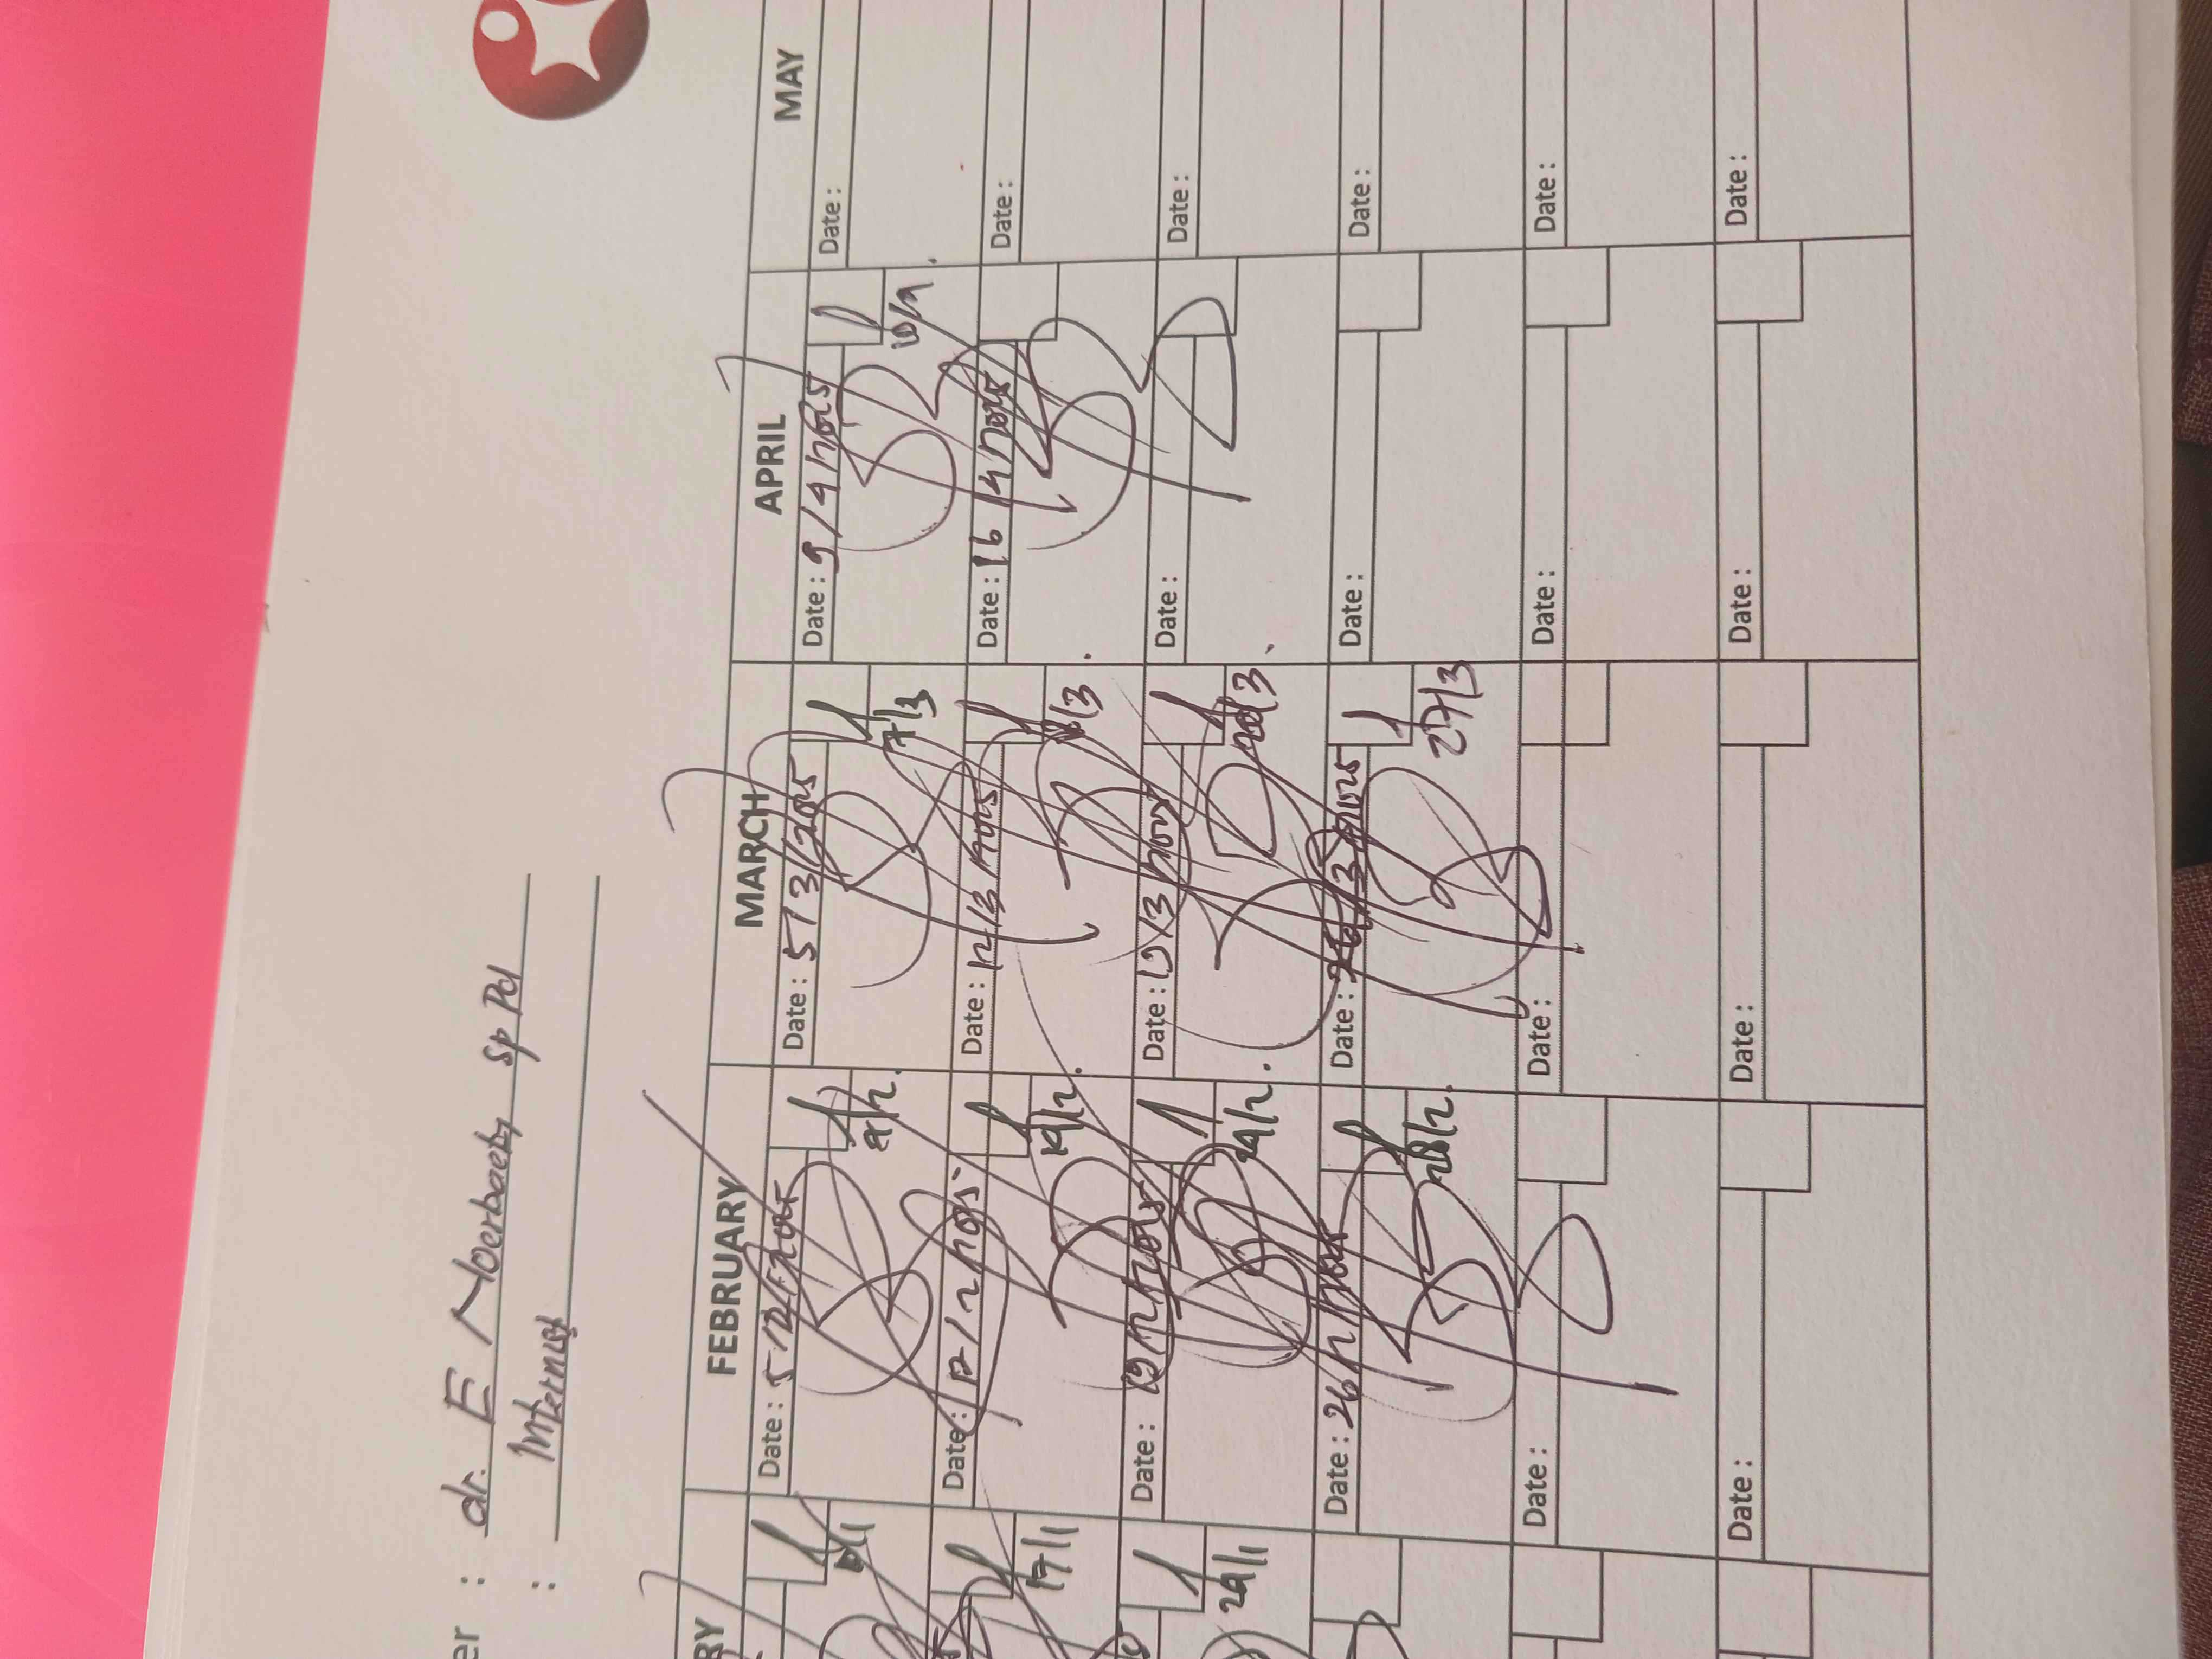 er : dr. E Noerbaety sp Pd
: Internist
RY FEBRUARY MARCH APRIL MAY
Date : 5/2/2025 Date : 5/3/2025 Date : 9/4/2025 Date :
8/2. 7/3 10/4
Date : 12/2/2025 Date : 12/3/2025 Date : 16/4/2025 Date :
17/1 14/2. /3
Date : 19/2/2025 Date : 19/3/2025 Date : Date :
24/1 24/2. 20/3
Date : 26/2/2025 Date : 26/3/2025 Date : Date :
28/2. 27/3
Date : Date : Date : Date :
Date : Date : Date : Date :